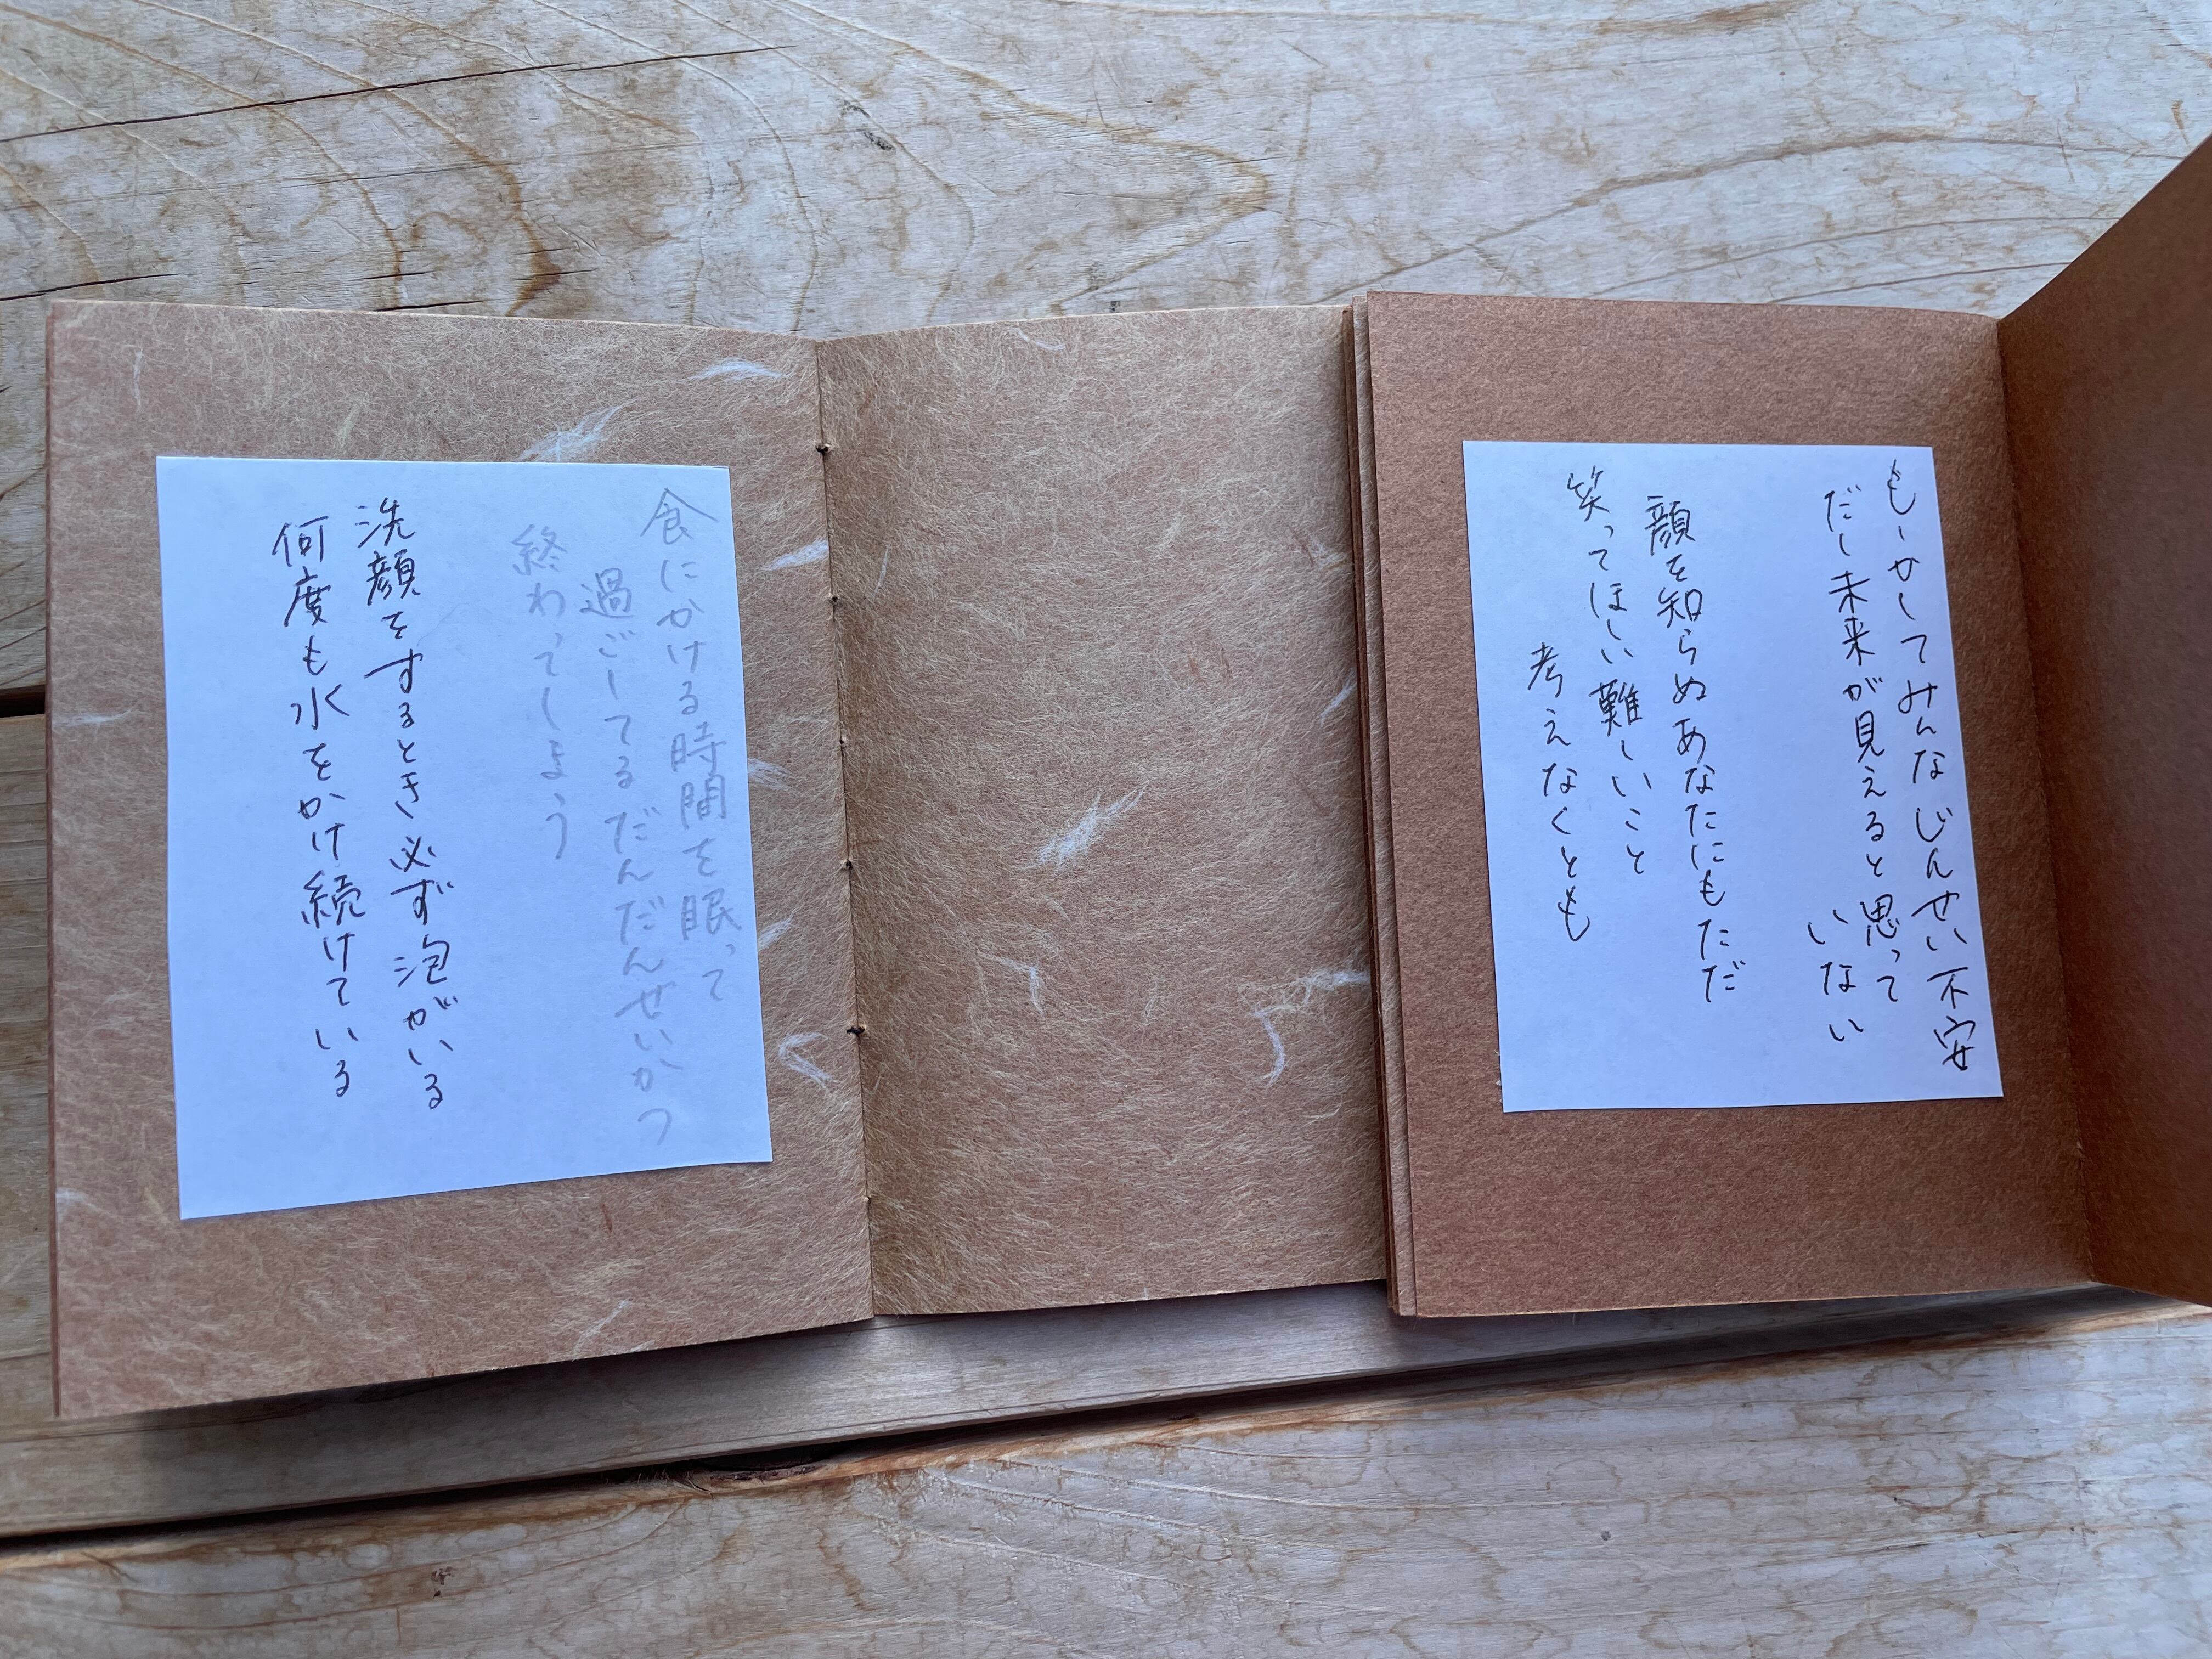 もしかしてみんなじんせい不安
だし未来が見えると思って
いない
顔を知らぬあなたにもただ
笑ってほしい難しいこと
考えなくとも
食にかける時間を眠って
過ごしてるだんだんせいかつ
終わってしまう
洗顔をするとき必ず泡がいる
何度も水をかけ続けている